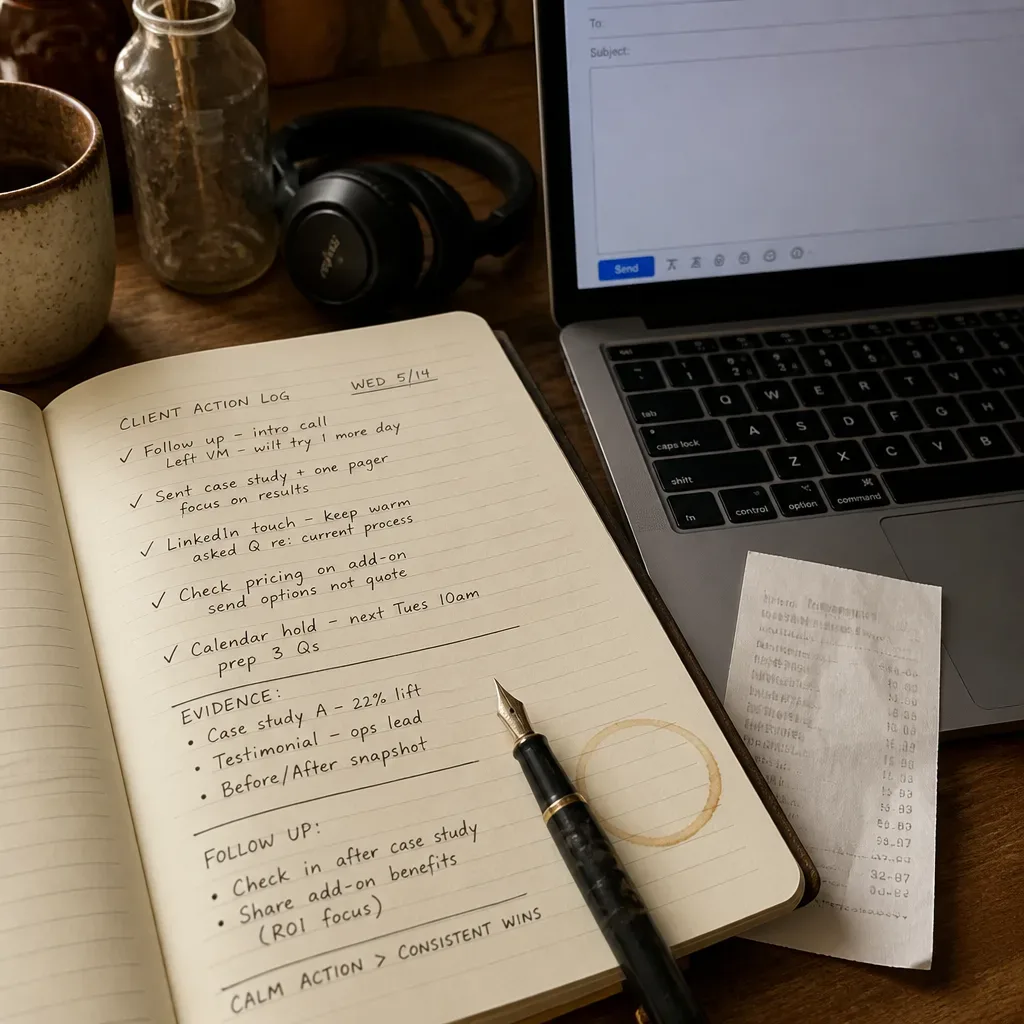 CLIENT ACTION LOG
WED 5/14
✓ Follow up – intro call
Left VM – will try 1 more day
✓ Sent case study + one pager
focus on results
✓ LinkedIn touch – keep warm
asked Q re: current process
✓ Check pricing on add-on
send options not quote
✓ Calendar hold – next Tues 10am
prep 3 Qs
EVIDENCE:
• Case study A – 22% lift
• Testimonial – ops lead
• Before/After snapshot
FOLLOW UP:
• Check in after case study
• Share add-on benefits
(ROI focus)
CALM ACTION > CONSISTENT WINS
To:
Subject:
Send
Q W E R T Y
tab
A S D F G H
caps lock
Z X C V B
shift
fn control option command
32-87